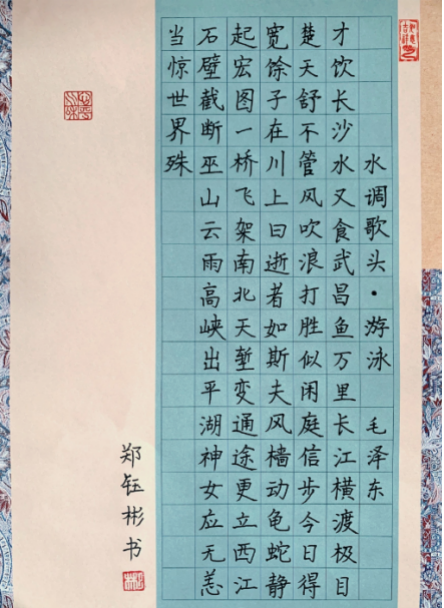 水调歌头·游泳 毛泽东
才饮长沙水又食武昌鱼万里长江横渡极目
楚天舒不管风吹浪打胜似闲庭信步今日得
宽馀子在川上曰逝者如斯夫风樯动龟蛇静
起宏图一桥飞架南北天堑变通途更立西江
石壁截断巫山云雨高峡出平湖神女应无恙
当惊世界殊
郑钰彬书